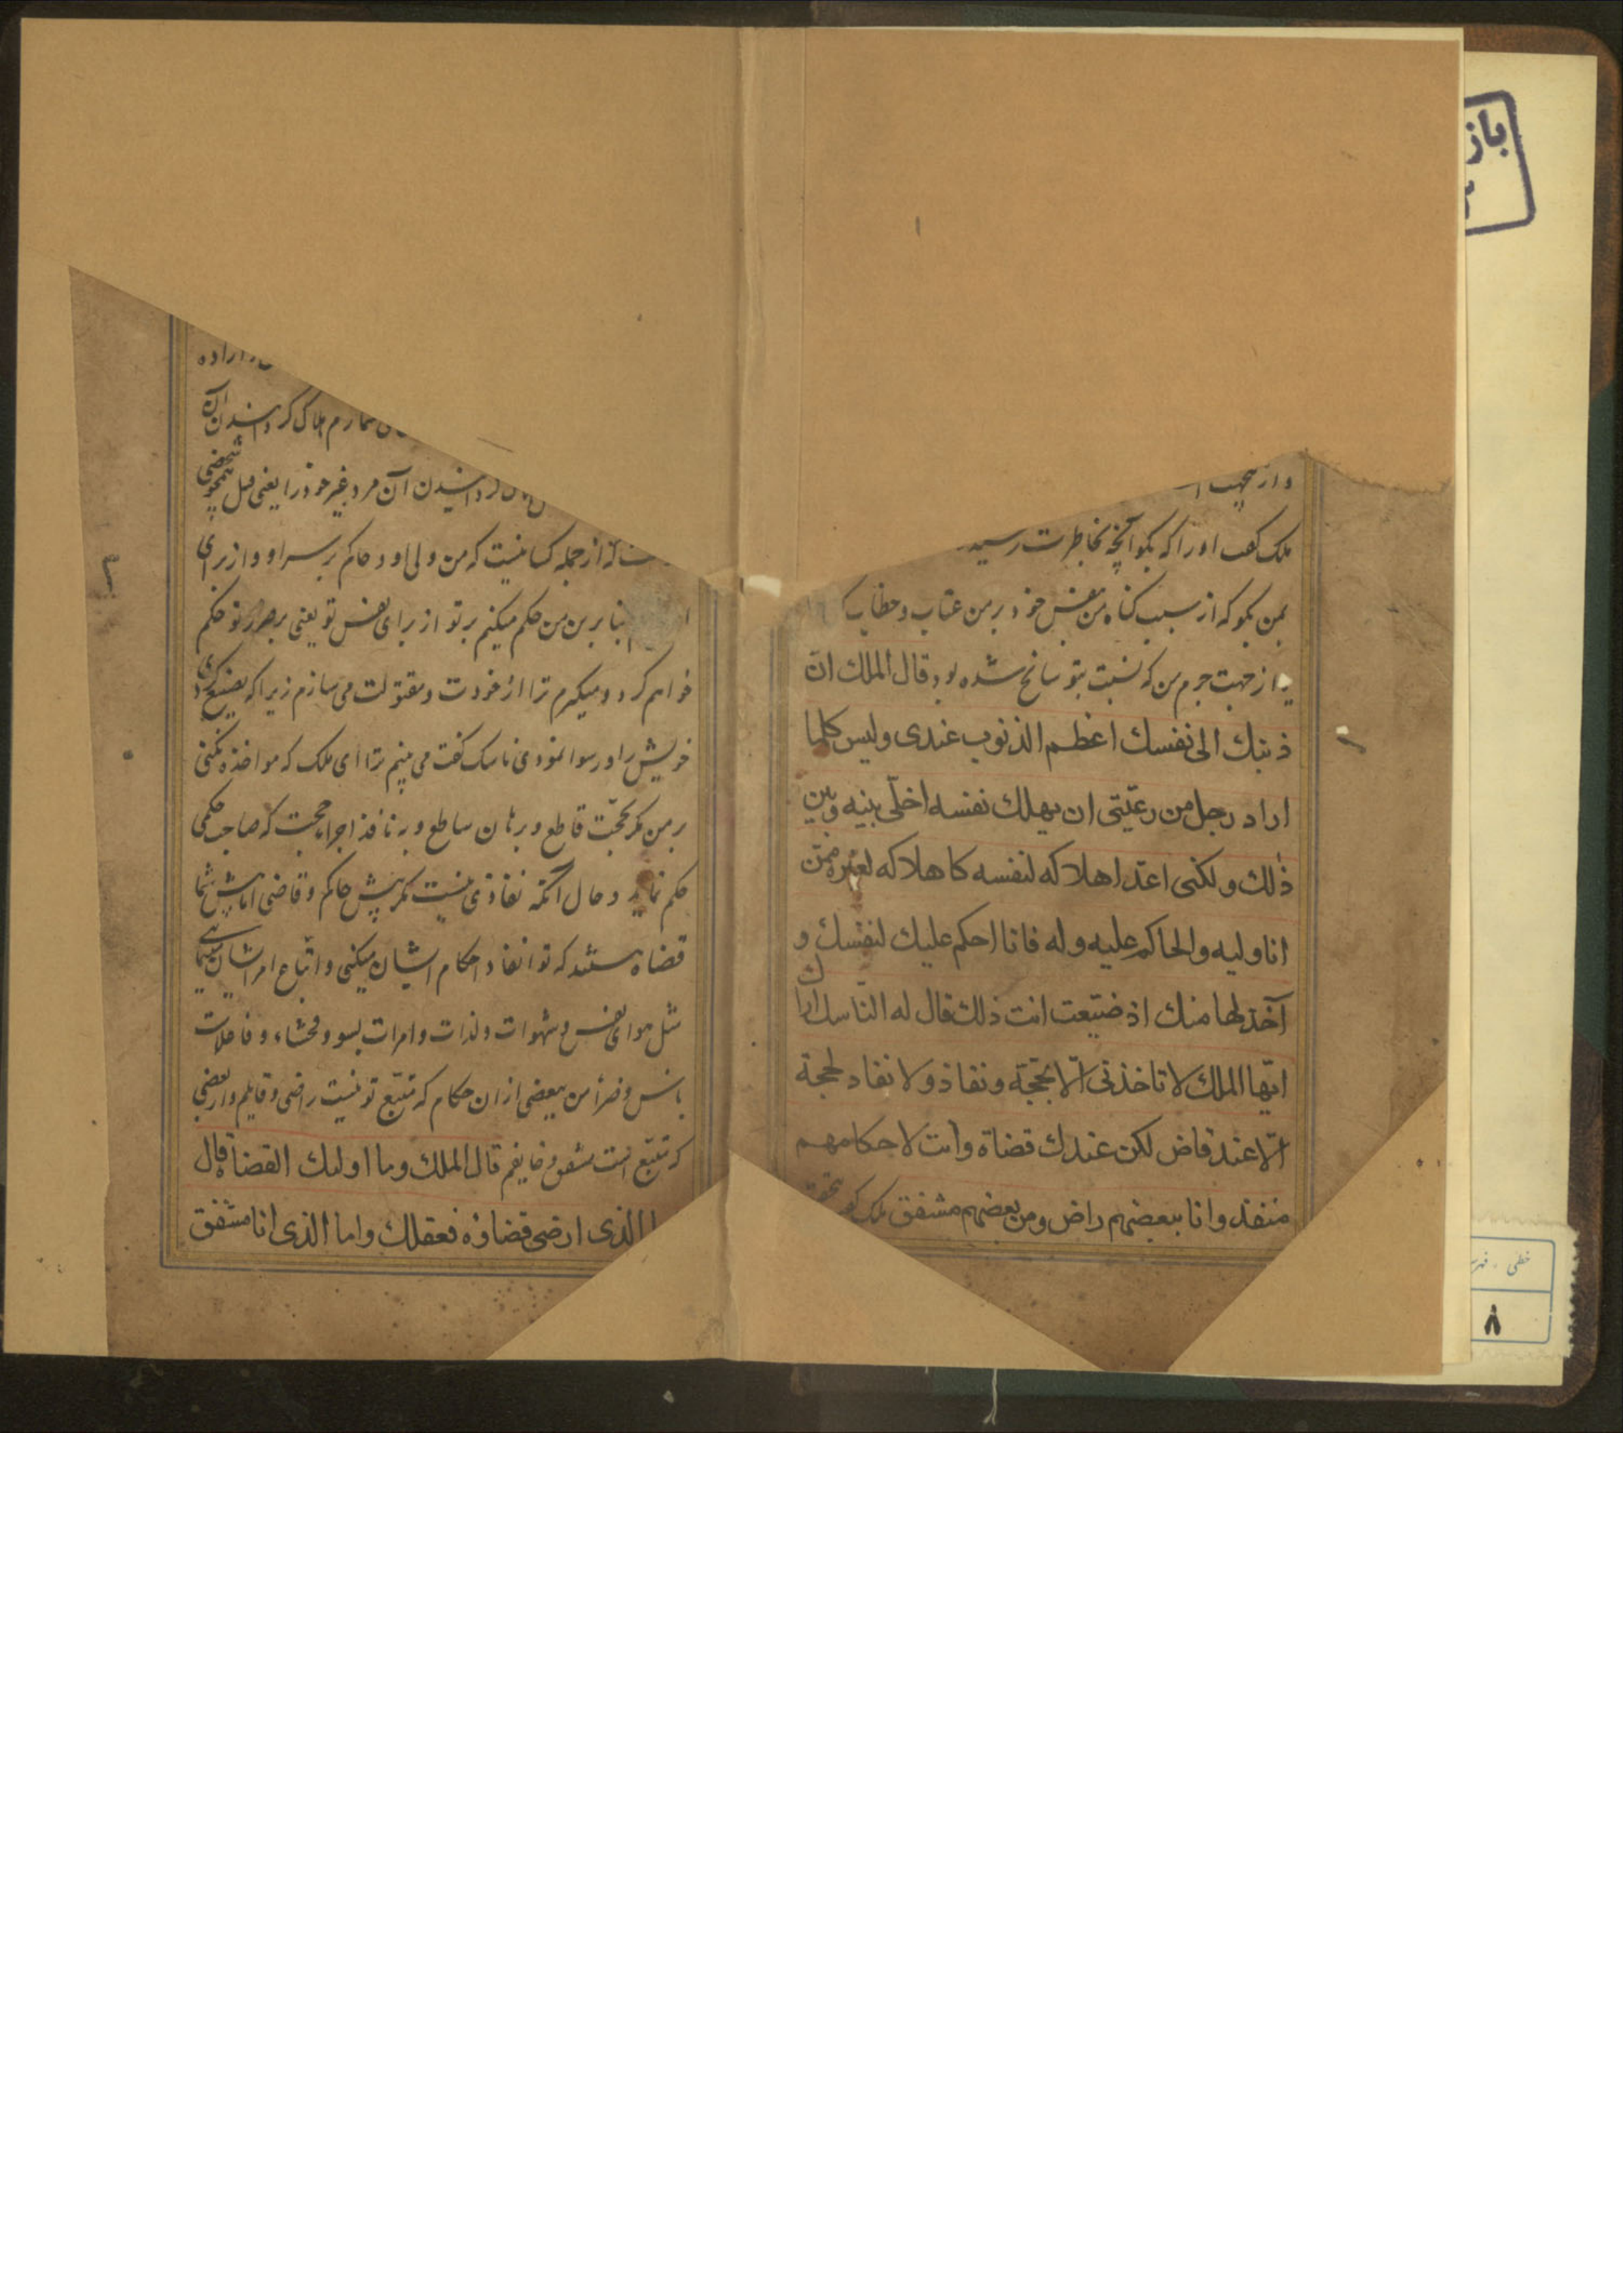 و از جهت
ملک گفت او را که بگو آنچه بخاطرت رسیده
بمن بگو که از سبب گناه من بنفس خود بر من عتاب و خطاب
یا از جهت جرم من که نسبت بتو سانح شده بود قال الملك ان
ذنبك الى نفسك اعظم الذنوب عندى وليس كلما
اراد رجل من رعيّتى ان يهلك نفسه اخلّى بينه وبين
ذلك ولكنى اعدّ اهلاكه لنفسه كاهلاكه لغيره ممّن
انا وليه والحاكم عليه وله فانا احكم عليك لنفسك و
آخذ لها منك اذ ضيّعت انت ذلك قال له الناسك اراك
ايّها الملك لا تاخذنى الّا بحجّة ونفاذ ولا نفاد لحجة
الّا عند قاض لكن عندك قضاة وانت لاحكامهم
منفذ وانا ببعضهم راض ومن بعضهم مشفق ملک گفت
اراده
هلاک گردانیدن آن
گردانیدن آن مرد غیر خود را یعنی قبل همچو شخصی
که از جمله کسانیست که من ولی او و حاکم بر سر او و از برای
بنا برین من حکم میکنم بر تو از برای نفس تو یعنی بر ضرر تو حکم
خواهم کرد و میگیرم ترا از خودت و مقتولت می سازم زیرا که تضییع کردی
خویش را و رسوا نمودی ناسک گفت می بینم ترا ای ملک که مواخذه نمیکنی
بر من مگر بحجّت قاطع و برهان ساطع و به نافذ اجرا حجت که صاحب حکمی
حکم نماید و حال آنکه نفاذی نیست مگر پیش حاکم و قاضی اما پیش شما
قضاه هستند که تو انفاد احکام ایشان میکنی و اتباع امر ایشان مینمای
مثل هوای نفس و شهوات و لذات و امرات بسو و فحشاء و فاعلات
باس و ضر امن ببعضی از ان حکام که متبّع تو نیست راضی و قایلم و از بعضی
که متبّع است مشفق و خایفم قال الملك وما اولئك القضاة قال
الذى ارضى قضاؤه فعقلك واما الذى انا مشفق
۲
باز
خطی
۸